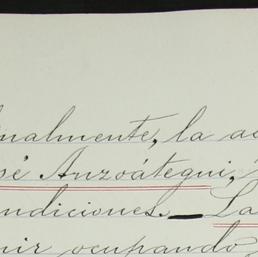 nalmente, la a
sé Anzoátegui,
ndiciones. — La
nir ocupando